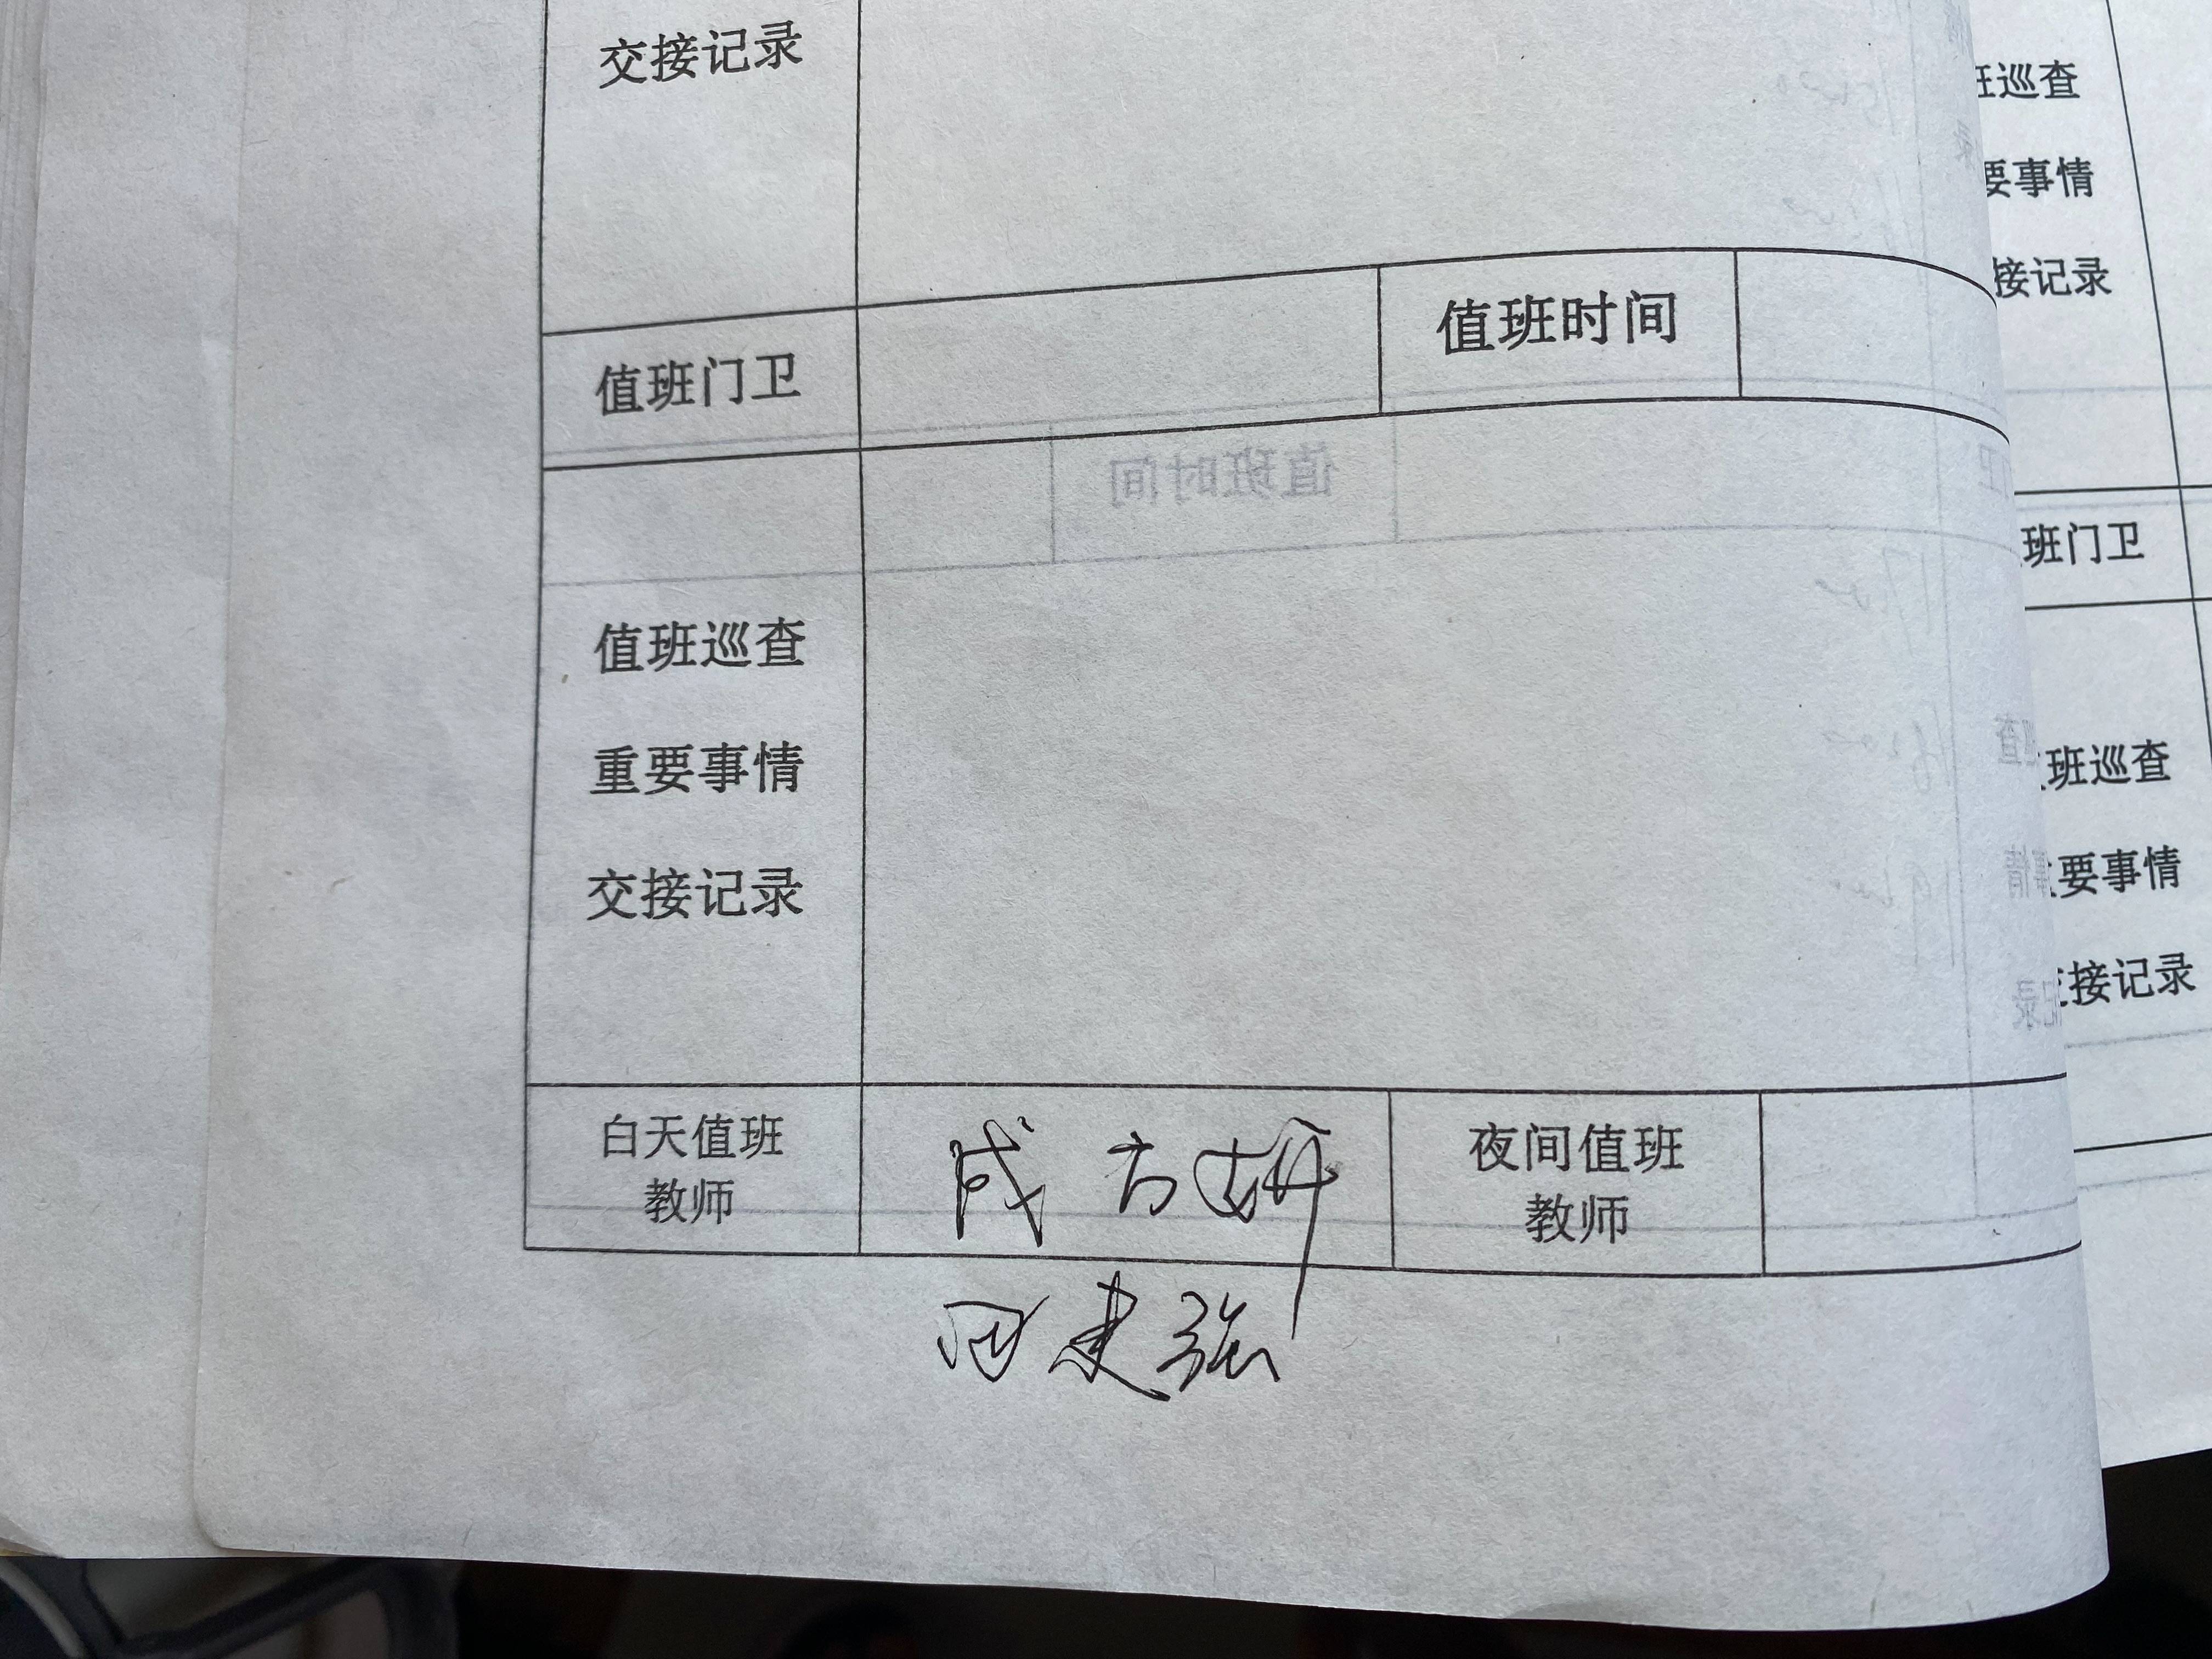 交接记录
值班门卫 值班时间
值班时间
值班巡查
重要事情
交接记录
白天值班
教师
成方妍
夜间值班
教师
田建强
班巡查
要事情
接记录
班门卫
班巡查
要事情
接记录